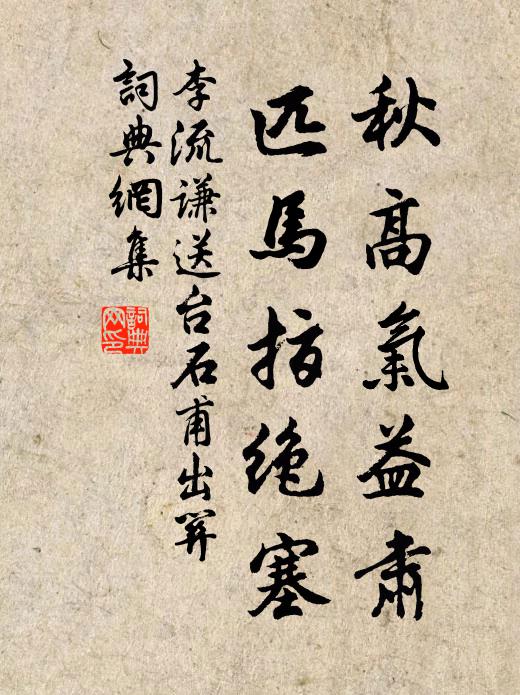 秋高氣益肅
匹馬指絶塞
李流謙送台石甫出關
詞典網集
詞典網印